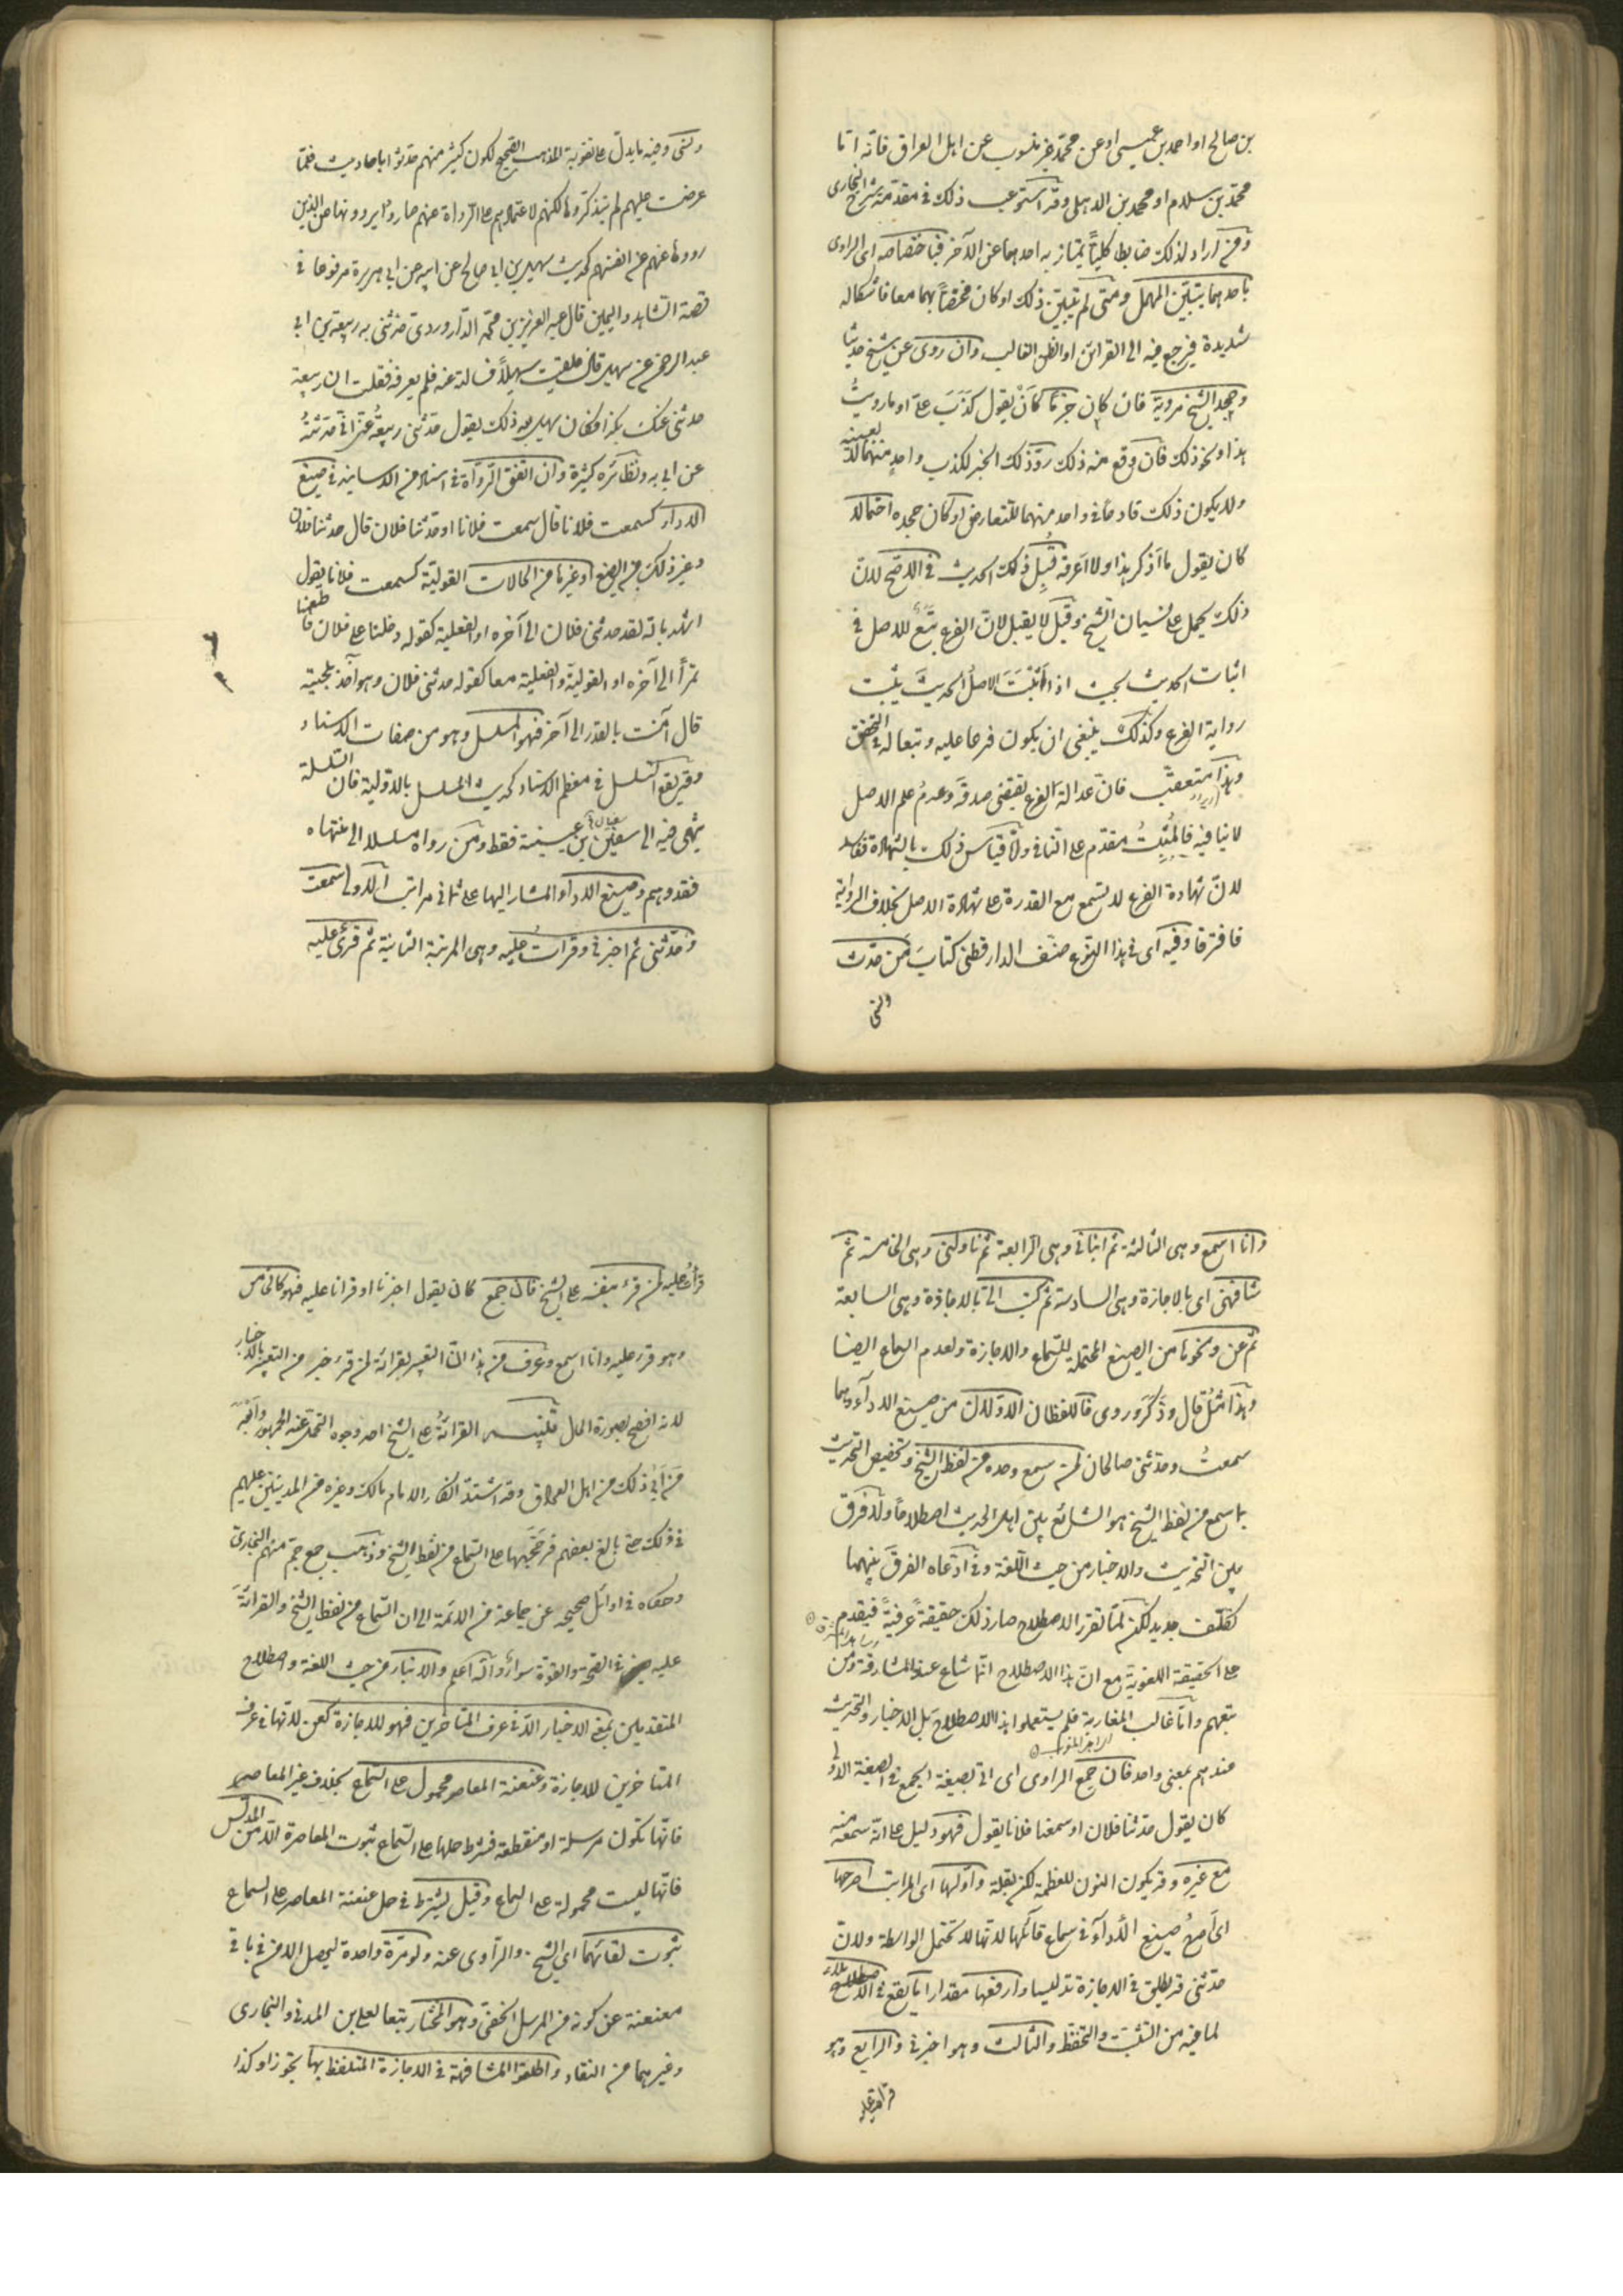 بن صالح او احمد بن عيسى او عن محمد غير منسوب عن اهل العراق فانه اما
محمد بن سلام او محمد بن الذهلى وقد استوعبت ذلك فى مقدمة شرح البخارى
ومن اراد لذلك ضابطا كليا يمتاز به احدهما عن الآخر فباختصاصه اى الراوى
باحدهما يتبين المهمل ومتى لم يتبين ذلك او كان مختصا بهما معا فاشكاله
شديدة فيرجع فيه الى القرائن او الظن الغالب وان روى عن شيخ حديثا
وجحد الشيخ مرويه فان كان جزما كان يقول كذب على او ما رويت
هذا ونحو ذلك فان وقع منه ذلك رد ذلك الخبر لكذب واحد منهما لا بعينه
ولا يكون ذلك قادحا فى واحد منهما للتعارض او كان جحده احتمالا
كان يقول ما اذكر هذا او لا اعرفه قبل ذلك الحديث فى الاصح لان
ذلك يحمل على نسيان الشيخ وقيل لا يقبل لان الفرع تبع للاصل فى
اثبات الحديث بحيث اذا اثبت الاصل الحديث يثبت
رواية الفرع وكذلك ينبغى ان يكون فرعا عليه وتبعا له فى التحقق
وهذا متعقب فان عدالة الفرع يقتضى صدقه وعدم علم الاصل
لا ينافيه فالمثبت مقدم على النافى واما قياس ذلك بالشهادة ففاسد
لان شهادة الفرع لا تسمع مع القدرة على شهادة الاصل بخلاف الرواية
فافترقا وفيه اى فى هذا النوع صنف الدارقطنى كتاب من حدث
ونسى
ونسى وفيه ما يدل على تقوية المذهب الصحيح لكون كثير منهم حدثوا باحاديث فلما
عرضت عليهم لم يتذكروها لكنهم لاعتمادهم على الرواة عنهم صاروا يروونها عن الذين
رووها عنهم عن انفسهم كحديث سهيل بن ابى صالح عن ابيه عن ابى هريرة مرفوعا فى
قصة الشاهد واليمين قال عبد العزيز بن محمد الدراوردى حدثنى به ربيعة بن ابى
عبد الرحمن عن سهيل قال فلقيت سهيلا فسالته عنه فلم يعرفه فقلت ان ربيعة
حدثنى عنك بكذا فكان سهيل بعد ذلك يقول حدثنى ربيعة عنى انى حدثته
عن ابى به ونظائره كثيرة وان اتفق الرواة فى اسناد من الاسانيد فى صيغ
الاداء كسمعت فلانا قال سمعت فلانا او حدثنا فلان قال حدثنا فلان
وغير ذلك من الصيغ او غيرها من الحالات القولية كسمعت فلانا يقول
اشهد بالله لقد حدثنى فلان الى آخره او الفعلية كقوله دخلنا على فلان فاطعمنا
تمرا الى آخره او القولية والفعلية معا كقوله حدثنى فلان وهو آخذ بلحيته
قال آمنت بالقدر الى آخر فهو المسلسل وهو من صفات الاسناد
وقد يقع التسلسل فى معظم الاسناد كحديث المسلسل بالاولية فان السلسلة
ينتهى فيه الى سفين بن عيينة فقط ومن رواه مسلسلا الى منتهاه
فقد وهم وصيغ الاداء المشار اليها على ثمانى مراتب الاولى سمعت
وحدثنى ثم اخبرنى وقرأت عليه وهى المرتبة الثانية ثم قرئ عليه
وانا اسمع وهى الثالثة ثم انبأنى وهى الرابعة ثم ناولنى وهى الخامسة ثم
شافهنى اى بالاجازة وهى السادسة ثم كتب الى بالاجازة وهى السابعة
ثم عن ونحوها من الصيغ المحتملة للسماع والاجازة ولعدم السماع ايضا
وهذا مثل قال وذكر وروى فاللفظان الاولان من صيغ الاداء وهما
سمعت وحدثنى صالحان لمن سمع وحده من لفظ الشيخ وتخصيص التحديث
بما سمع من لفظ الشيخ هو الشائع بين اهل الحديث اصطلاحا ولا فرق
بين التحديث والاخبار من حيث اللغة وفى ادعاه الفرق بينهما
تكلف جديد لكن لما تقرر الاصطلاح صار ذلك حقيقة عرفية فيقدم
على الحقيقة اللغوية مع ان هذا الاصطلاح انما شاع عند المشارقة ومن
تبعهم واما غالب المغاربة فلم يستعملوا هذا الاصطلاح بل الاخبار والتحديث
عندهم بمعنى واحد فان جمع الراوى اى اتى بصيغة الجمع فى الصيغة الاولى
كان يقول حدثنا فلان او سمعنا فلانا يقول فهو دليل على انه سمعه منه
مع غيره وقد يكون النون للعظمة لكن بقلة واولها اى المراتب اصرحها
اى اصرح صيغ الاداء فى سماع قائلها لانها لا تحتمل الواسطة ولان
حدثنى قد يطلق فى الاجازة تدليسا وارفعها مقدارا ما يقع فى الاملاء
لما فيه من التثبت والتحفظ والثالث وهو اخبرنى والرابع وهو
قرأت عليه
قرأت عليه لمن قرء بنفسه على الشيخ فان جمع كان يقول اخبرنا او قرانا عليه فهو كالخامس
وهو قرء عليه وانا اسمع وعرف من هذا ان التعبير بقرائة لمن قرء خير من التعبير بالاخبار
لانه افصح بصورة الحال تنبيه القرائة على الشيخ احد وجوه التحمل عند الجمهور وابعد
من ابى ذلك من اهل العراق وقد اشتد انكار الامام مالك وغيره من المدنيين عليهم
فى ذلك حتى بالغ بعضهم فرجحها على السماع من لفظ الشيخ وذهب جمع جم منهم البخارى
وحكاه فى اوائل صحيحه عن جماعة من الائمة الى ان السماع من لفظ الشيخ والقرائة
عليه فى الصحة والقوة سواء والله اعلم والانباء من حيث اللغة واصطلاح
المتقدمين بمعنى الاخبار الا فى عرف المتاخرين فهو للاجازة كعن لانها فى عرف
المتاخرين للاجازة وعنعنة المعاصر محمول على السماع بخلاف غير المعاصر
فانها تكون مرسلة او منقطعة فشرط حملها على السماع ثبوت المعاصرة الا من المدلس
فانها ليست محمولة على السماع وقيل يشترط فى حمل عنعنة المعاصر على السماع
ثبوت لقائهما اى الشيخ والراوى عنه ولو مرة واحدة ليحصل الامن فى باقى
معنعنه عن كونه من المرسل الخفى وهو المختار تبعا لعلى بن المدنى والبخارى
وغيرهما من النقاد واطلقوا المشافهة فى الاجازة المتلفظ بها تجوزا وكذا